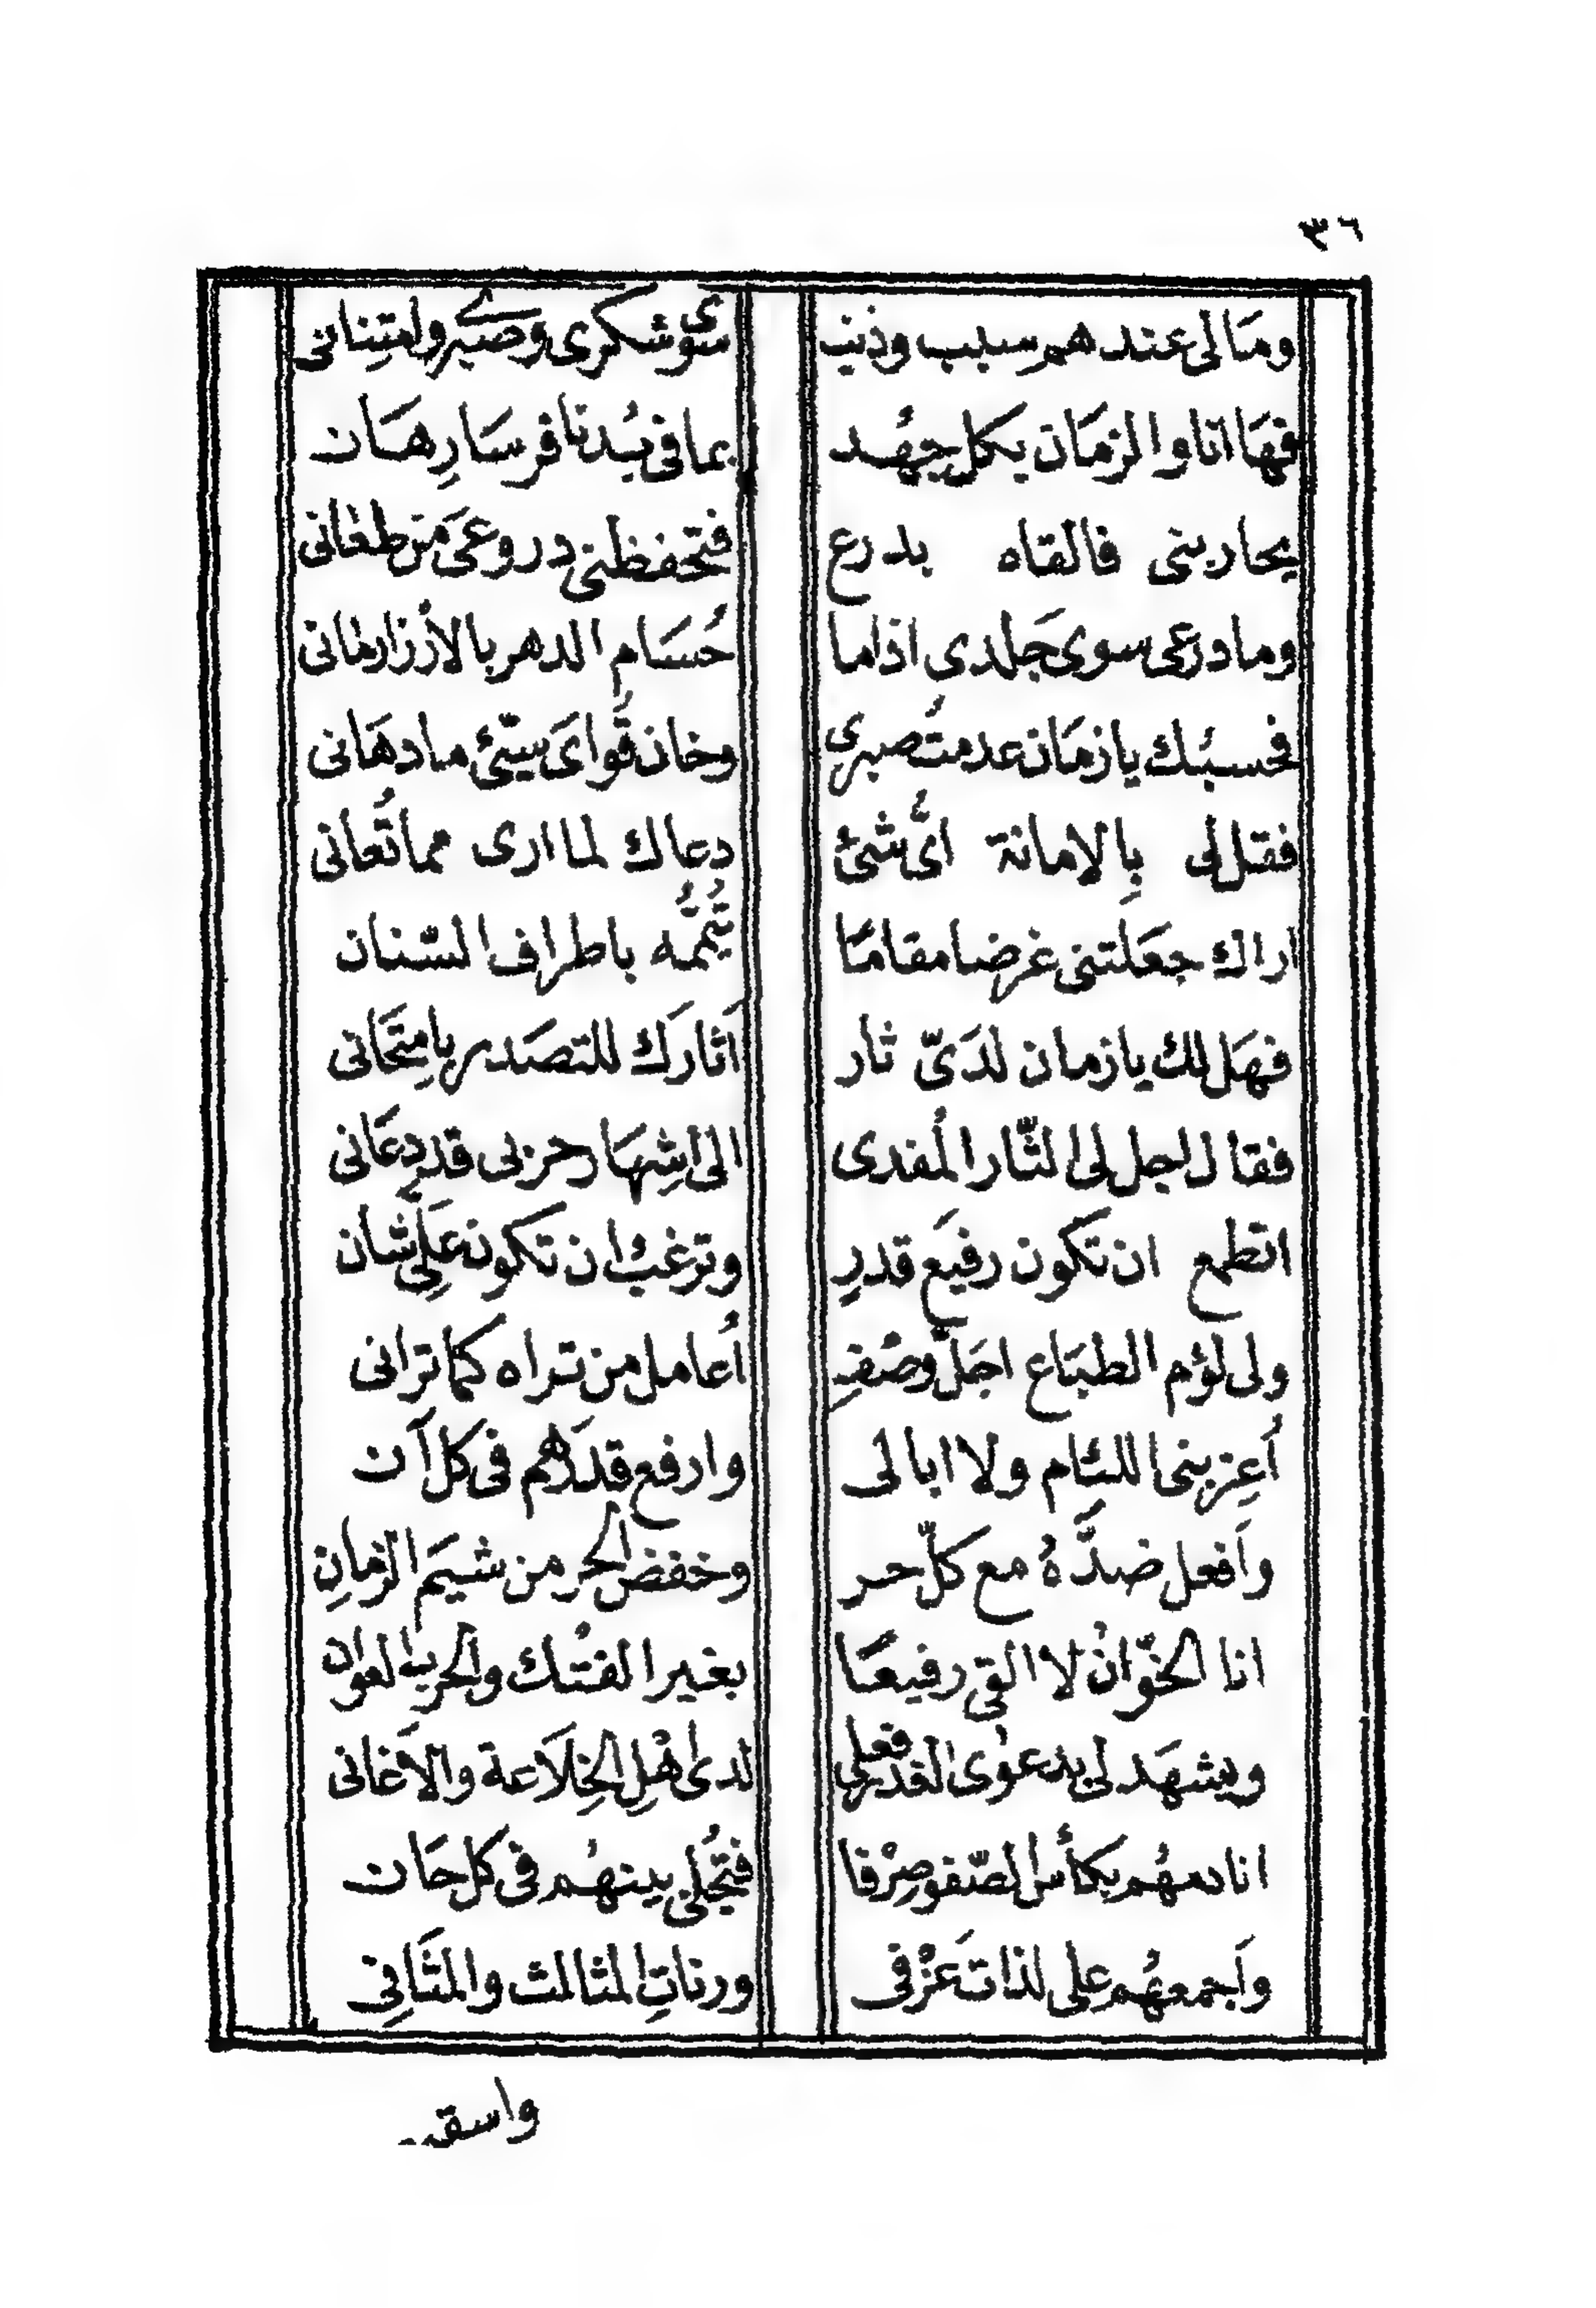 ٣٦
ومَا لى عندهم سبب وذنب سوى شكرى وصبرى وامتِنانى
فهَا انا والزمَان بكل جهْد بما فى بُدنا فرسَا رِهَان
يحاربنى فالقاه بدرع فتحفظنى دروعىَ من طعانى
وما درعى سوى جَلدى اذا ما حُسَام الدهر بالأرزا رمانى
فحسبُك يا زمَان عدمتُ صبرى وخان قُواىَ سيّئ ما دهَانى
فقل لى بِالامانة اىُّ شئ دعاك لما ارى مما تُعانى
اراك جعَلتنى غرضا مقامًا تُيَمّمُه باطراف السّنان
فهَل لك يا زمان لدَىّ ثار اَثارَك للتصَدر بامتِحَانى
فقال اجل لى الثّار المُفدى الى اشِهَار حزبى قد دعَانى
اتطمع ان تكون رفيَع قدرٍ وترغبُ ان تكون عَلِىَّ شان
ولى لؤم الطبَاع اجَلّ وصْفٍ اُعامل من تراه كما ترانى
اَعِز بنى اللئام ولا ابالى وارفع قدرَهم فى كل آن
واَفعل ضدَّهُ مع كلّ حر وخفض الحر من شيَم الزمانِ
انا الخوّانُ لا القى رفيعًا بغير الفتْك والحرب العوان
ويشهَد لى بدعوٰى الغدر فعلى لدى اهْلِ الخِلاَعة والاَغانى
انادمهُم بكأس الصّفو صِرْفا فتُجْلى بينهُم فى كل حَان
واَجمعهُم على لذات عَزْفى ورناتِ المثالث والمثَانِى
واسق